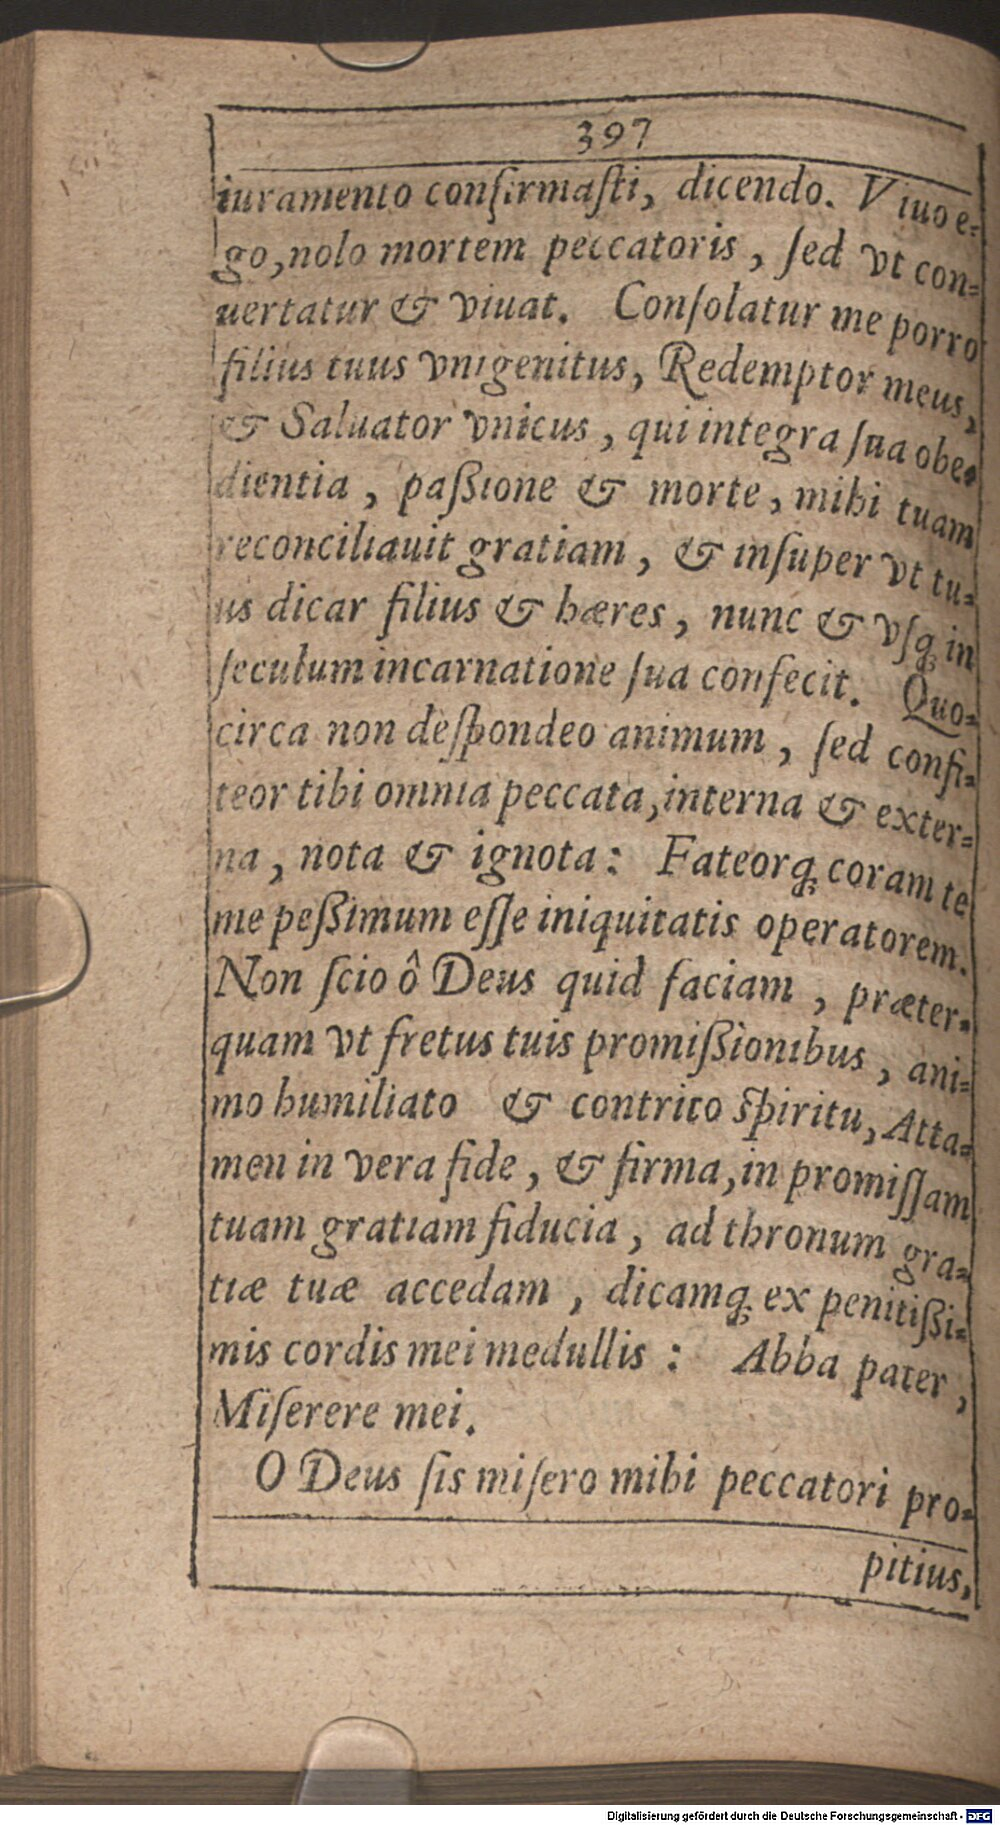 397
iuramento confirmaſti, dicendo. Viuo e-
go, nolo mortem peccatoris, ſed vt con-
uertatur & viuat. Conſolatur me porro
filius tuus vnigenitus, Redemptor meus,
& Saluator vnicus, qui integra ſua obe-
dientia, paßione & morte, mihi tuam
reconciliauit gratiam, & inſuper vt tu-
us dicar filius & hæres, nunc & vſq; in
ſeculum incarnatione ſua confecit. Quo-
circa non deſpondeo animum, ſed confi-
teor tibi omnia peccata, interna & exter-
na, nota & ignota: Fateorq; coram te
me peßimum eſſe iniquitatis operatorem.
Non ſcio ô Deus quid faciam, præter-
quam vt fretus tuis promißionibus, ani-
mo humiliato & contrito ſpiritu, Atta-
men in vera fide, & firma, in promiſſam
tuam gratiam fiducia, ad thronum gra-
tiæ tuæ accedam, dicamq; ex penitißi-
mis cordis mei medullis: Abba pater,
Miſerere mei.
O Deus ſis miſero mihi peccatori pro-
pitius,
Digitalisierung gefördert durch die Deutsche Forschungsgemeinschaft - DFG